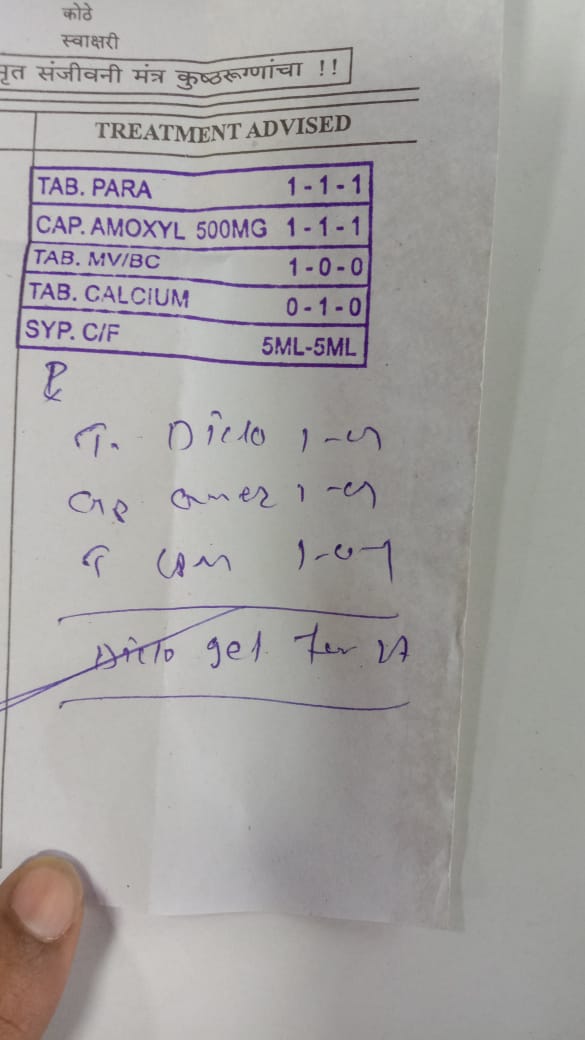 कोठे
स्वाक्षरी
मृत संजीवनी मंत्र कुष्ठरूग्णांचा !!
TREATMENT ADVISED
TAB. PARA 1-1-1
CAP. AMOXYL 500MG 1-1-1
TAB. MV/BC 1-0-0
TAB. CALCIUM 0-1-0
SYP. C/F 5ML-5ML
T. Diclo
Cap
T
Diclo gel